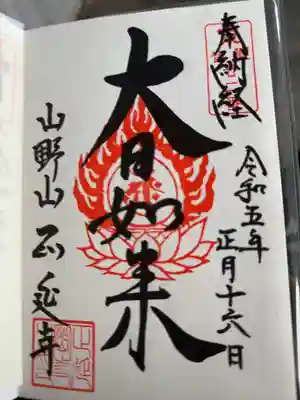 奉納経
令和五年
正月十六日
大日如来
山野山 正延寺